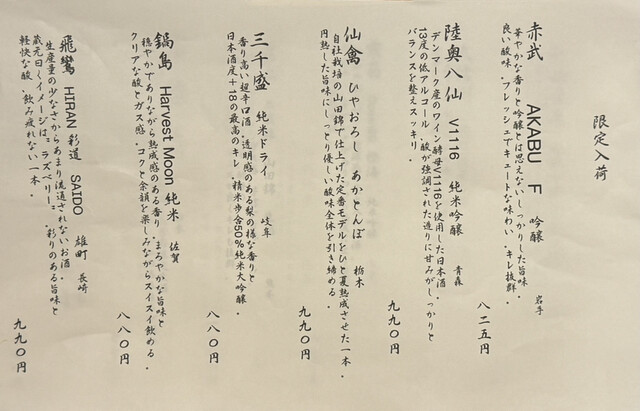 限定入荷
赤武 AKABU F 吟醸 岩手
華やかな香りと吟醸とは思えないしっかりした旨味。
良い酸味。フレッシュでキュートな味わい。キレ抜群。
八二五円
陸奥八仙 V1116 純米吟醸 青森
デンマーク産のワイン酵母V1116を使用した日本酒。
13度の低アルコール。酸が強調された造りに甘みがしっかりと
バランスを整えスッキリ。
九九〇円
仙禽 ひやおろし あかとんぼ 栃木
自社栽培の山田錦で仕上げた定番モデルをひと夏熟成させた一本。
円熟した旨味にしっとり優しい酸味全体を引き締める。
九九〇円
三千盛 純米ドライ 岐阜
香り高い超辛口酒。透明感のある梨の様な香りと
日本酒度+18の最高のキレ。精米歩合50%純米大吟醸。
八八〇円
鍋島 Harvest Moon 純米 佐賀
穏やかでありながら熟成感のある香り。まろやかな旨味と
クリアな酸とガス感。コクと余韻を楽しみながらスイスイ飲める。
八八〇円
飛鸞 HIRAN 彩道 SAIDO 雄町 長崎
生産量の少なさからあまり流通されないお酒。
蔵元曰くイメージは『ラズベリー』。彩りのある旨味と
軽快な酸。飲み疲れない一本。
九九〇円